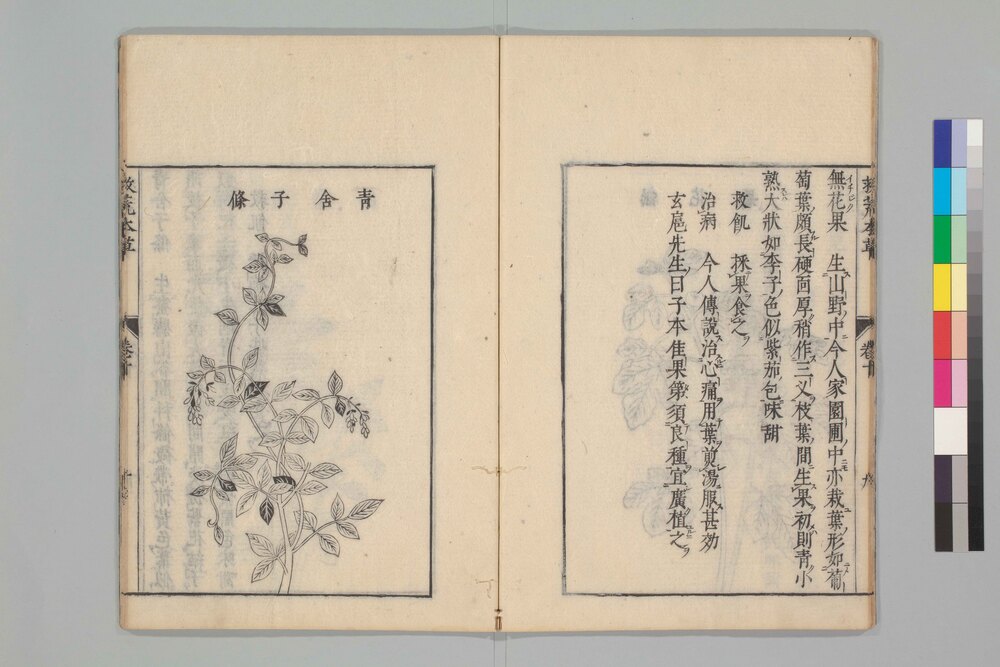 無花果 生山野中今人家園圃中亦栽葉形如葡
イチヂク
萄葉頗長硬而厚稍作三叉枝葉間生果初則青小
熟大狀如李子色似紫茄包味甜
救飢 採果食之
治病 今人傳說治心痛用葉煎湯服甚効
玄扈先生曰子本佳果第須良種宜廣植之
救荒本草
卷十
九
青舍子條
救荒本草
卷十